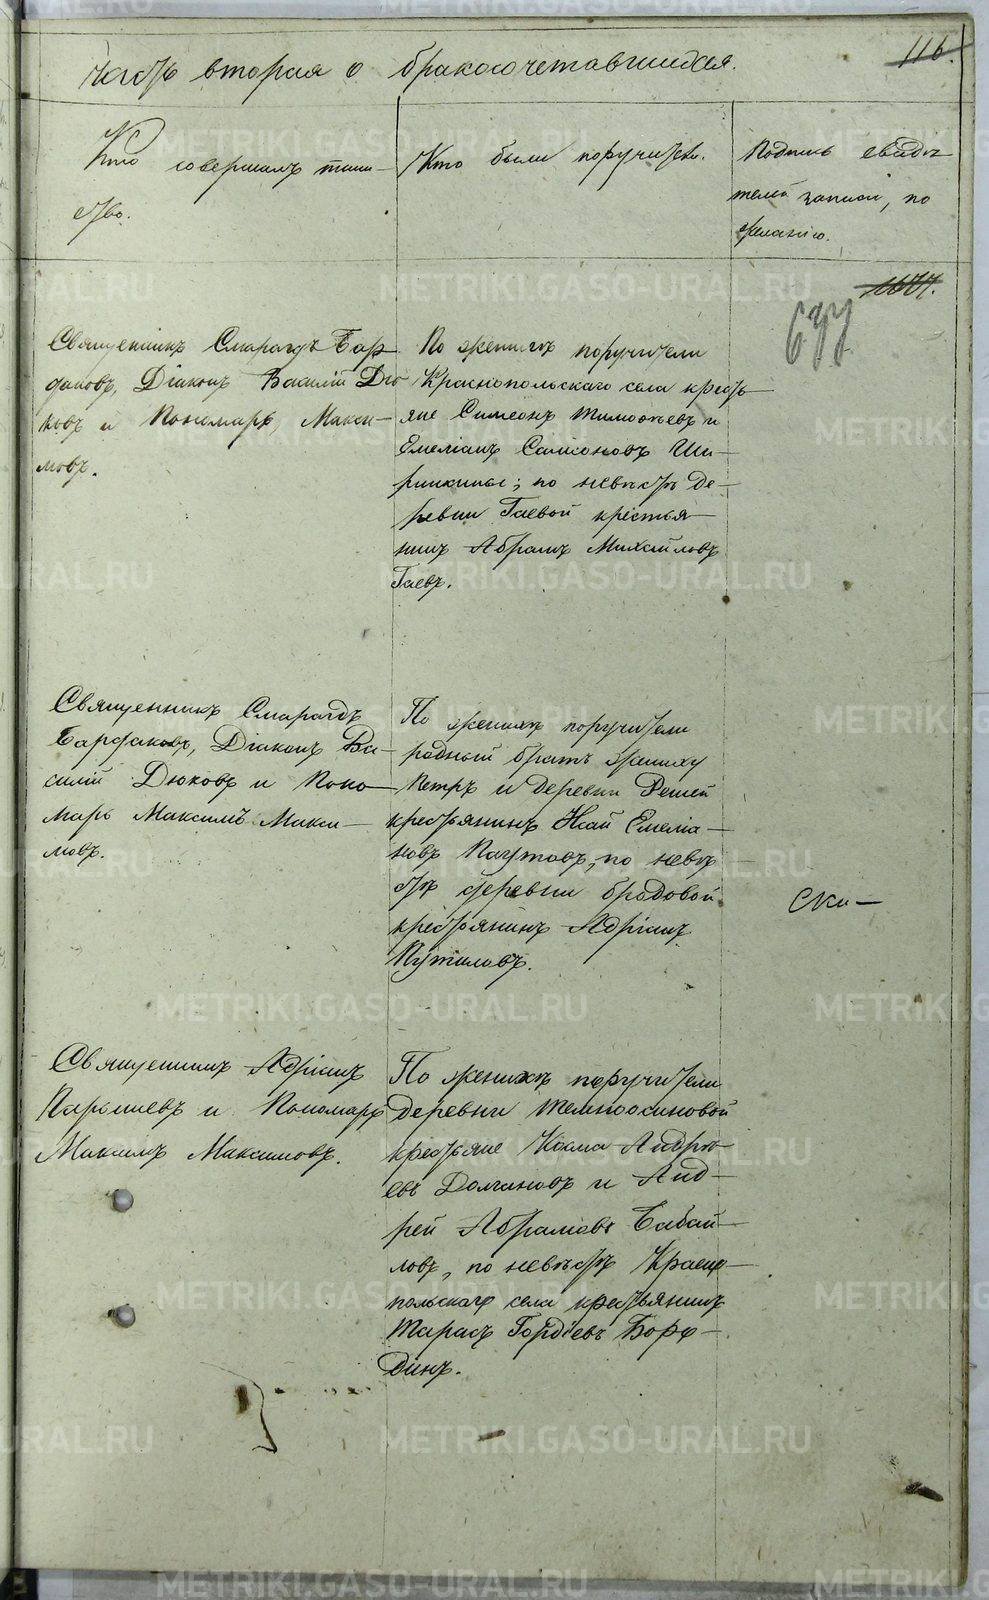 116.
часть вторая о бракосочетавшихся.
Кто совершалъ таин-
ство.
Кто были поручители.
Подпись свидѣ-
телей записи, по
желанію.
1677.
677
Священникъ Смарагдъ Бар
даковъ, Діаконъ Василій Дю
ковъ и Пономарь Макси-
мовъ.
По женихѣ поручители
Краснопольскаго села кресть-
яне Симеонъ Тимофѣевъ и
Емеліанъ Самсоновъ Ши-
ринкины; по невѣстѣ де-
ревни Гаевой крестья-
нинъ Абрамъ Михайловъ
Гаевъ.
Священникъ Смарагдъ
Бардаковъ, Діаконъ Ва-
силій Дюковъ и Поно-
марь Максимъ Макси-
мовъ.
По женихѣ поручители
родный братъ жениху
Петръ и деревни
крестьянинъ Емеліа-
новъ по невѣ-
стѣ деревни бродовой
крестьянинъ Адріанъ
Путиловъ.
Ски-
Священникъ Адріанъ
и Пономарь
Максимъ Максимовъ.
По женихѣ поручители
деревни Темноосиновой
крестьяне Косма Андрѣ-
евъ Долгановъ и Анд-
рей Абрамовъ Бабай-
ловъ, по невѣстѣ Красно-
польскаго села крестьянинъ
Тарасъ Гордѣевъ Боро-
динъ.
METRIKI.GASO-URAL.RU